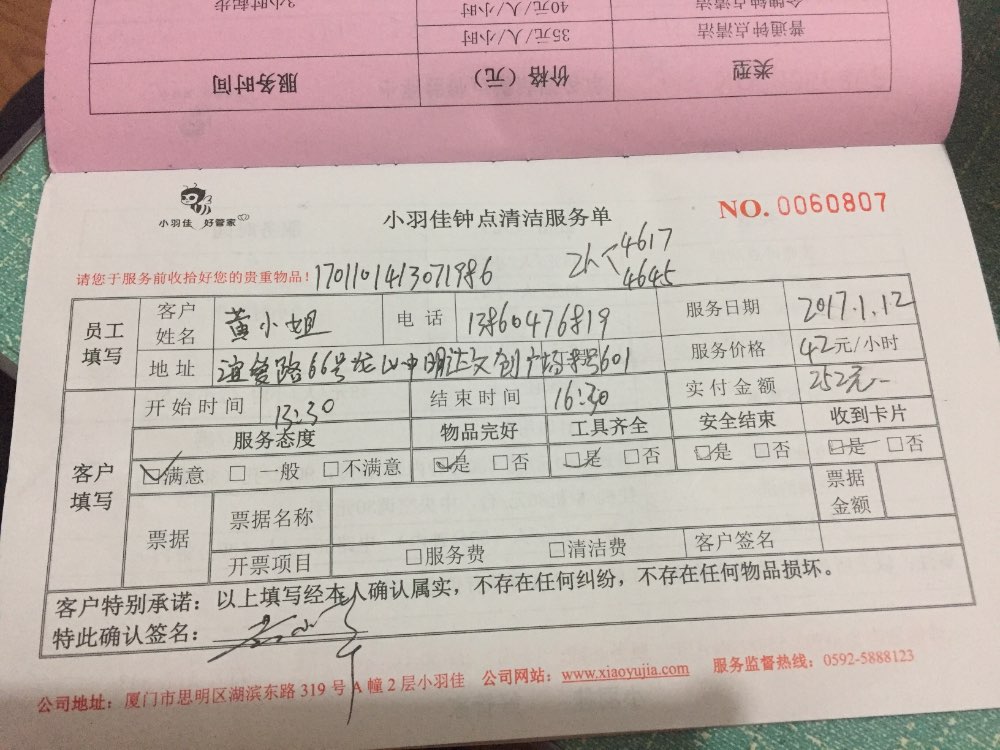 3小时起步
40元/人/小时
金牌钟点清洁
35元/人/小时
普通钟点清洁
服务时间
价格（元）
类型
小羽佳 好管家
小羽佳钟点清洁服务单
NO. 0060807
请您于服务前收拾好您的贵重物品！ 1701101413071986
4617
4645
员工填写
客户姓名 黄小姐 电话 13860476819 服务日期 2017.1.12
地址 谊爱路66号龙山中明达文创广场 601 服务价格 42元/小时
客户填写
开始时间 13:30 结束时间 16:30 实付金额 252元
服务态度 物品完好 工具齐全 安全结束 收到卡片
满意 □ 一般 □ 不满意 是 □否 是 □否 □是 □否 □是 □否
票据 票据名称 票据金额
开票项目 □服务费 □清洁费 客户签名
客户特别承诺：以上填写经本人确认属实，不存在任何纠纷，不存在任何物品损坏。
特此确认签名：
公司地址：厦门市思明区湖滨东路 319 号 A 幢 2 层小羽佳 公司网站：www.xiaoyujia.com 服务监督热线：0592-5888123